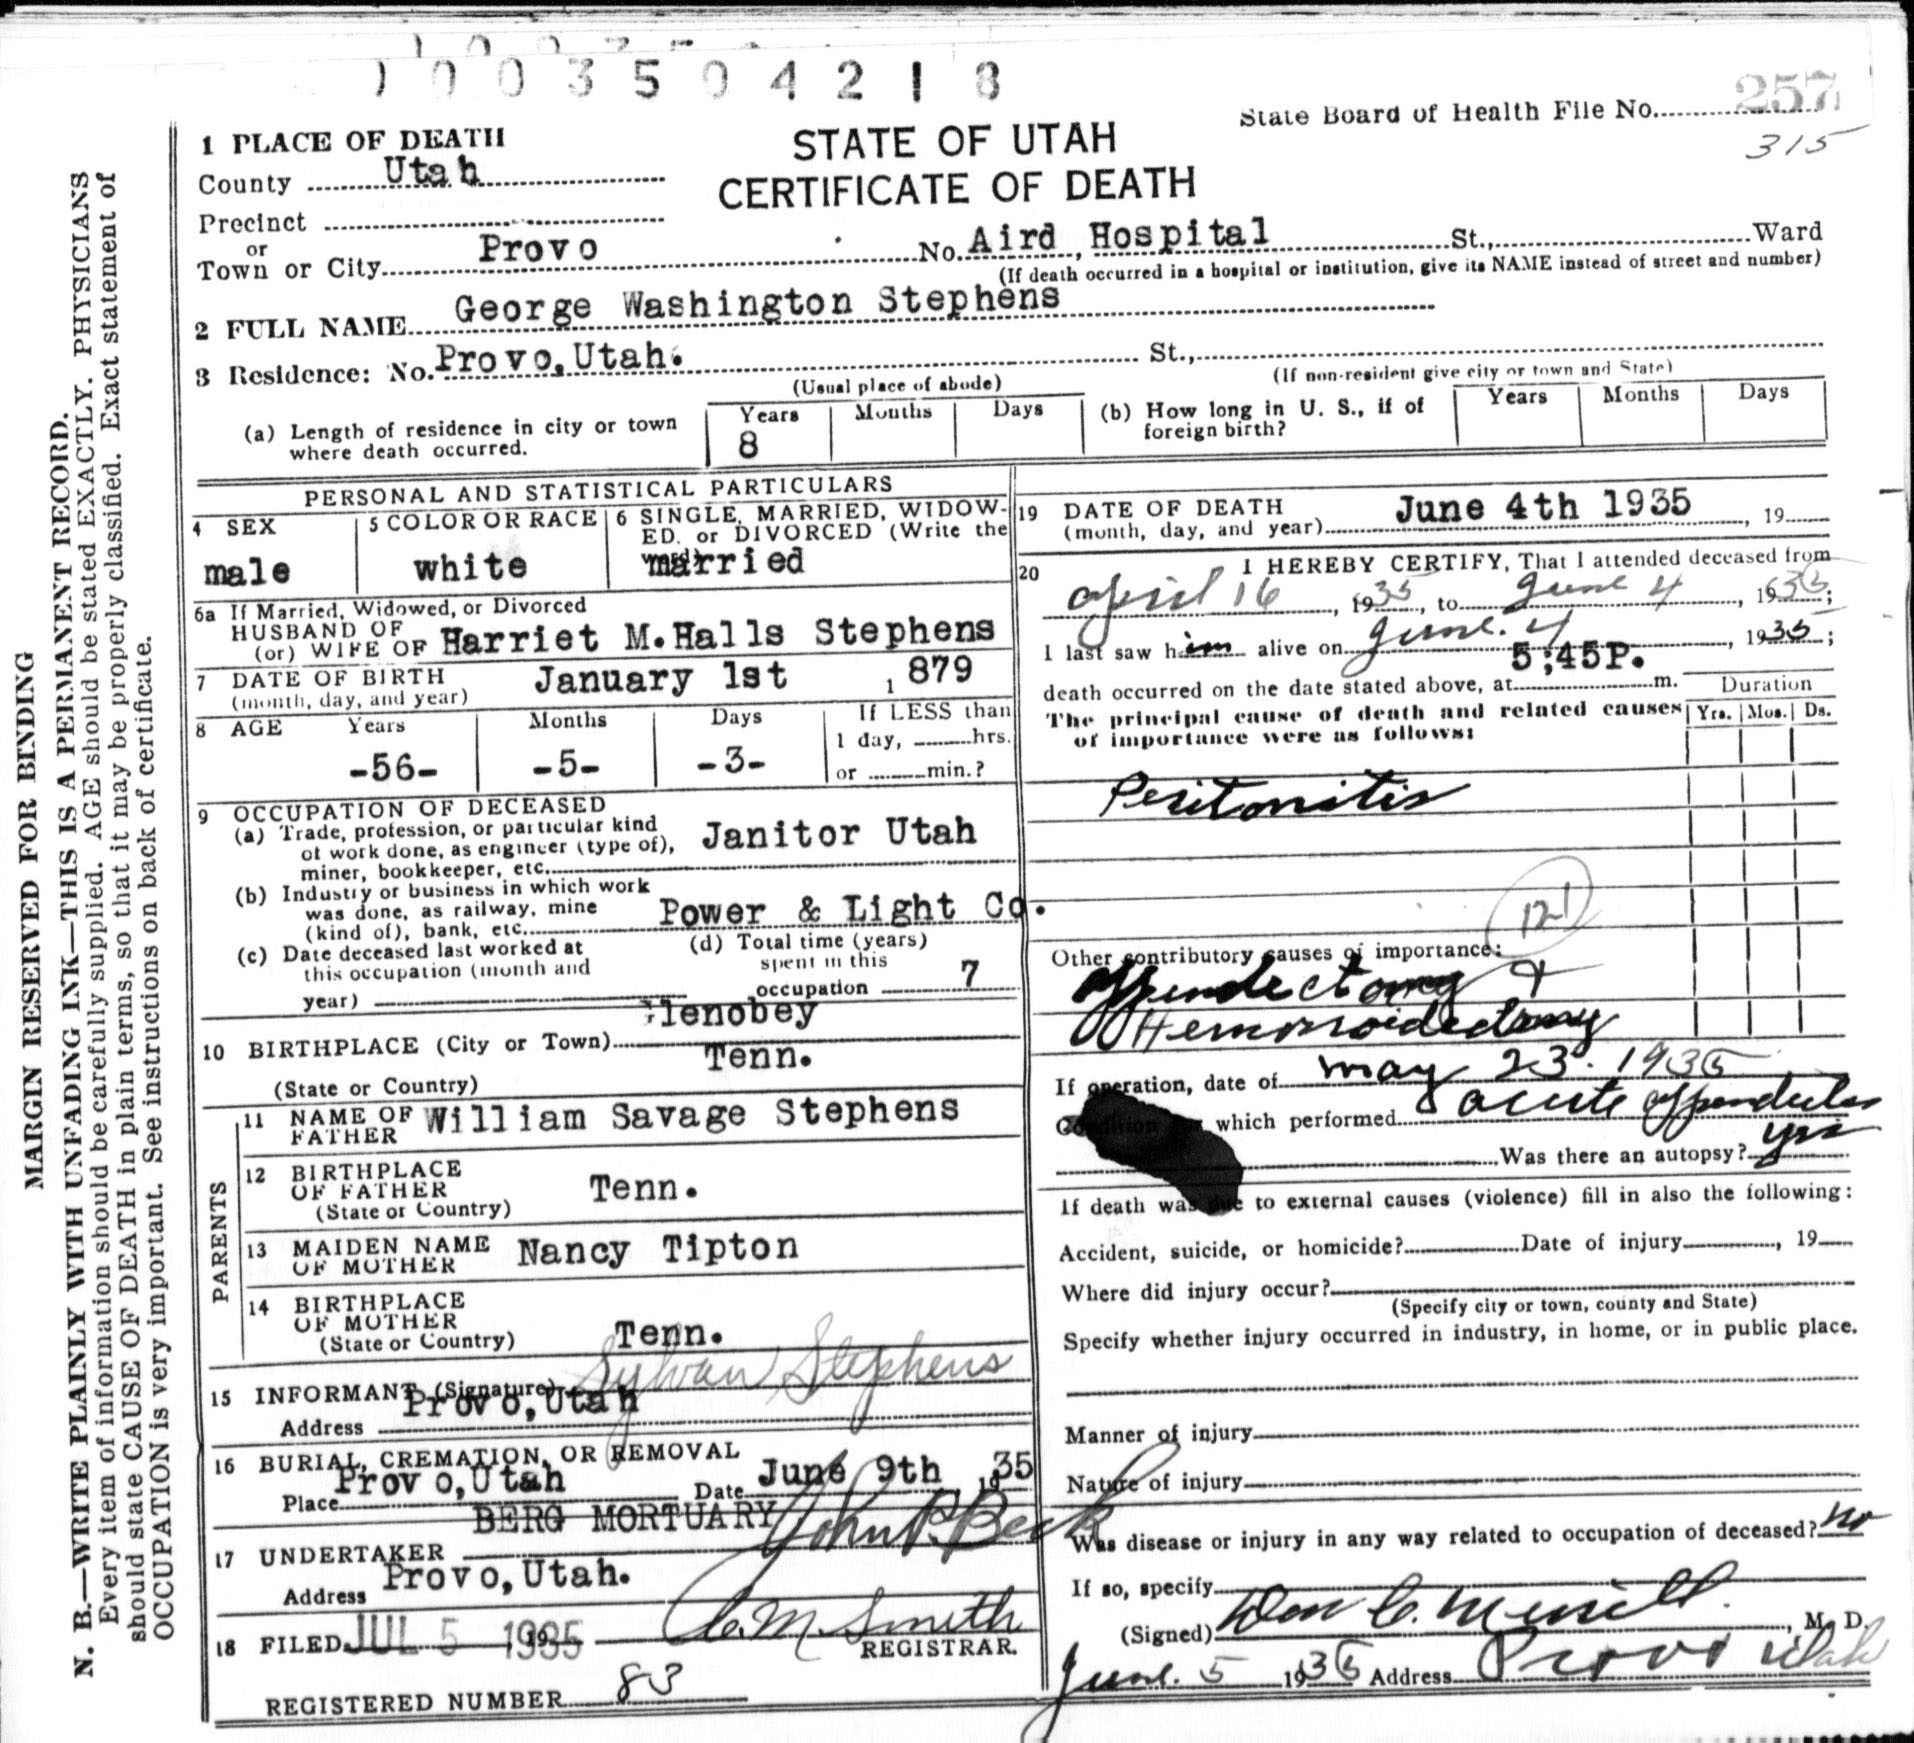 1003504218
State Board of Health File No. 257
315
1 PLACE OF DEATH
STATE OF UTAH
County Utah
CERTIFICATE OF DEATH
Precinct
or
Town or City Provo No. Aird, Hospital St., Ward
(If death occurred in a hospital or institution, give its NAME instead of street and number)
2 FULL NAME George Washington Stephens
3 Residence: No. Provo, Utah. St.,
(Usual place of abode)
(If non-resident give city or town and State)
(a) Length of residence in city or town where death occurred.
Years Months Days
8
(b) How long in U. S., if of foreign birth?
Years Months Days
PERSONAL AND STATISTICAL PARTICULARS
4 SEX
male
5 COLOR OR RACE
white
6 SINGLE, MARRIED, WIDOW-
ED, or DIVORCED (Write the
word)
married
6a If Married, Widowed, or Divorced
HUSBAND OF
(or) WIFE OF Harriet M. Halls Stephens
7 DATE OF BIRTH
(month, day, and year) January 1st 1879
8 AGE Years Months Days If LESS than
1 day, hrs.
-56- -5- -3- or min.?
9 OCCUPATION OF DECEASED
(a) Trade, profession, or particular kind
of work done, as engineer (type of),
miner, bookkeeper, etc. Janitor Utah
(b) Industry or business in which work
was done, as railway, mine
(kind of), bank, etc. Power & Light Co.
(c) Date deceased last worked at
this occupation (month and
year)
(d) Total time (years)
spent in this
occupation 7
10 BIRTHPLACE (City or Town) Glenobey
(State or Country) Tenn.
PARENTS
11 NAME OF
FATHER William Savage Stephens
12 BIRTHPLACE
OF FATHER
(State or Country) Tenn.
13 MAIDEN NAME
OF MOTHER Nancy Tipton
14 BIRTHPLACE
OF MOTHER
(State or Country) Tenn.
15 INFORMANT (Signature) Sylvan Stephens
Address Provo, Utah
16 BURIAL, CREMATION, OR REMOVAL
Place Provo, Utah Date June 9th 1935
17 UNDERTAKER BERG MORTUARY John P. Beck
Address Provo, Utah.
18 FILED JUL 5 1935 C.M. Smith
REGISTRAR.
REGISTERED NUMBER 83
19 DATE OF DEATH
(month, day, and year) June 4th 1935, 19
20 I HEREBY CERTIFY, That I attended deceased from
april 16, 1935, to June 4, 1935;
I last saw him alive on June. 4, 1935;
death occurred on the date stated above, at 5;45P. m.
Duration
The principal cause of death and related causes
of importance were as follows:
Yrs. Mos. Ds.
Peritonitis
121
Other contributory causes of importance:
Appendectomy &
Hemorroidectomy
If operation, date of may 23. 1935
Condition for which performed acute appendicitis
Was there an autopsy? yes
If death was due to external causes (violence) fill in also the following:
Accident, suicide, or homicide? Date of injury, 19
Where did injury occur?
(Specify city or town, county and State)
Specify whether injury occurred in industry, in home, or in public place.
Manner of injury
Nature of injury
Was disease or injury in any way related to occupation of deceased? no
If so, specify
(Signed) Don C. Merrill, M. D.
June. 5 1935 Address Provo Utah
MARGIN RESERVED FOR BINDING
N. B.—WRITE PLAINLY WITH UNFADING INK—THIS IS A PERMANENT RECORD.
Every item of information should be carefully supplied. AGE should be stated EXACTLY. PHYSICIANS
should state CAUSE OF DEATH in plain terms, so that it may be properly classified. Exact statement of
OCCUPATION is very important. See instructions on back of certificate.